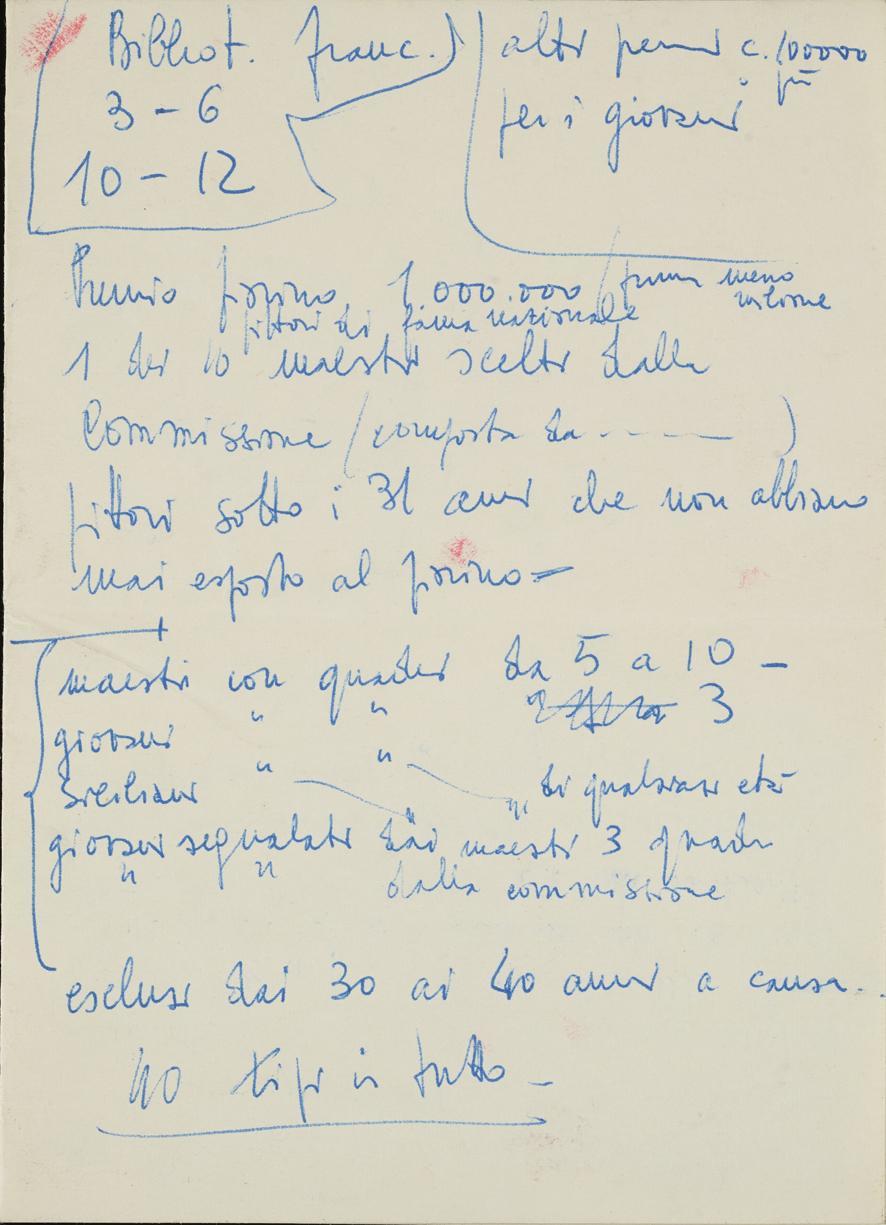 Bibliot. franc.)
3 - 6
10 - 12
altri premi c. 100000
per i giovani
Premio fiorino 1.000.000
meno
milione
pittori di fama nazionale
1 dei 10 maestri scelti dalla
Commissione (composta da - - - - )
pittori sotto i 31 anni che non abbiano
mai esposto al fiorino -
maestri con quadri da 5 a 10 -
giovani " " 3
siciliani " " di qualsiasi età
giovani segnalati dai maestri 3 quadri
" " dalla commissione
esclusi dai 30 ai 40 anni a causa..
40 tipi in tutto -